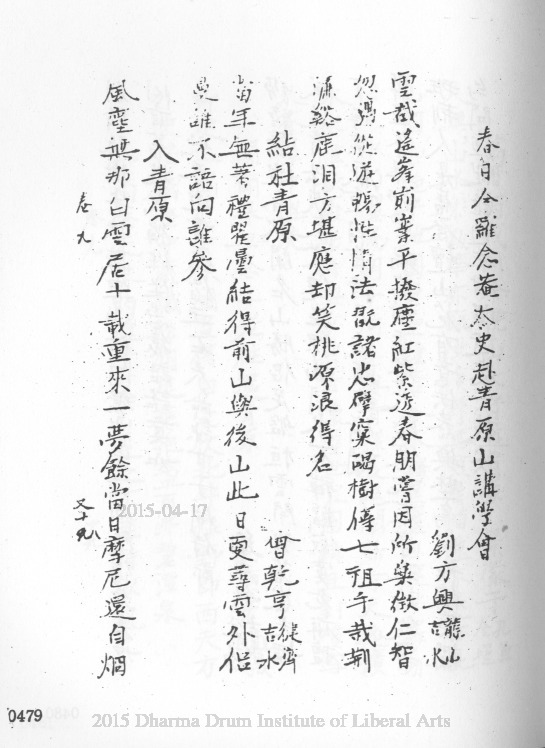 春日令羅念菴太史赴青原山講學會
劉方興 龍山 吉水
雲截遙峯前業平撥塵紅紫逗春明尋因所樂徵仁智
忽漫從遊暢性情法 諸 窠 樹傳七祖手裁荆
溪 庭泪方堪應却笑桃源浪得名
結社青原
曾乾亨 健齋 吉水
當年無著禮瞿曇結得前山與後山此日更尋雲外侶
曼誰不語向誰參
入青原
風塵無那白雲居十載重來一夢餘當日摩尼還自烟
卷九
又十九
2015-04-17
0479
2015 Dharma Drum Institute of Liberal Arts